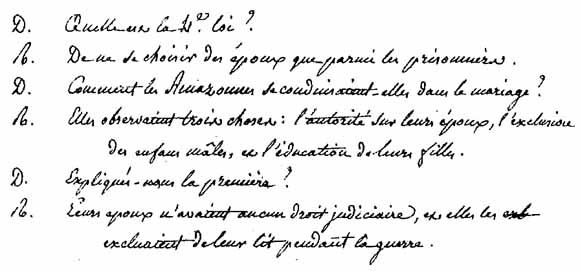 D. Quelle est la 4me loi ?
R. De ne se choisir des époux que parmi les prisonniers.
D. Comment les Amazonnes se conduisaient-elles dans le mariage ?
R. Elles observaient trois choses : l'autorité sur leurs époux, l'exclusion
des enfans mâles, et l'éducation de leurs filles.
D. Expliqués-nous la première ?
R. Leurs époux n'avaient aucun droit judiciaire, et elles les
excluaient de leur lit pendant la guerre.